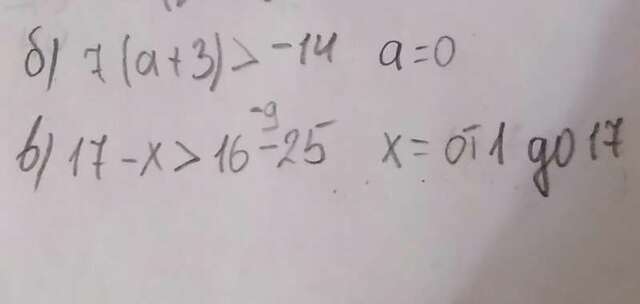 б) 7(a+3)>-14 a=0
-9
в) 17-x>16-25 x= от 1 до 17